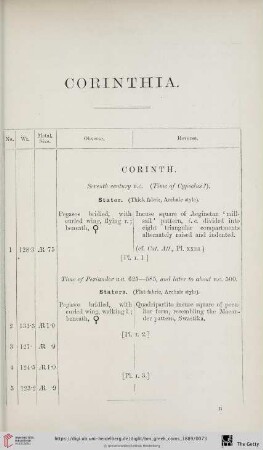 CORINTHIA.
No. Wt. Metal. Size. Obverse. Reverse.
CORINTH.
Seventh century B.C. (Time of Cypselus?).
Stater. (Thick fabric, Archaic style).
Pegasos bridled, with curled wing, flying r.; beneath, Ϙ
Incuse square of Aeginetan 'mill-sail' pattern, i.e. divided into eight triangular compartments alternately raised and indented.
1 128·3 Æ ·75
(cf. Cat. Att., Pl. XXIII.)
[Pl. I. 1.]
Time of Periander B.C. 625—585, and later to about B.C. 500.
Staters. (Flat fabric, Archaic style).
Pegasos bridled, with curled wing, walking l.; beneath, Ϙ
Quadripartite incuse square of peculiar form, resembling the Maeander pattern, Swastika.
2 131·5 Æ 1·0
[Pl. I. 2.]
3 127·
4
[Pl. I. 3.]
5
B
https://digi.ub.uni-heidelberg.de/diglit/bm_greek_coins_1889/0073
The Getty